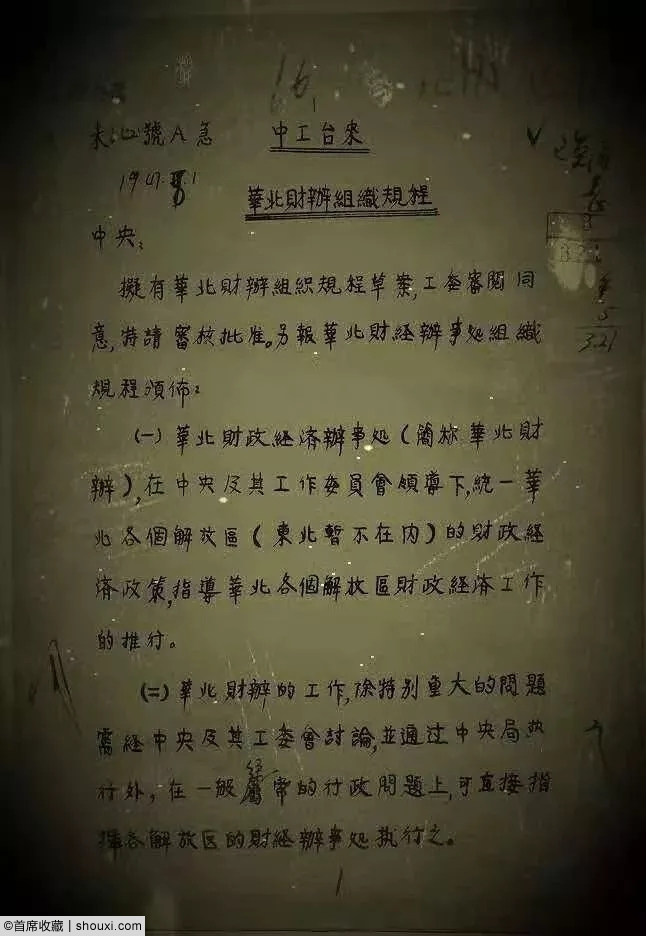 16
未心號A急 中工台來
1947.8.1
華北財辦組織規程
中央：
擬有華北財辦組织規程草案,工委審閱同
意,特請審核批准。另報華北財经辦事処組織
規程頒佈：
(一)華北財政経済辦事処(簡称華北財
辦),在中央及其工作委員會領導下,統一華
北各個解放區(東北暫不在内)的財政経
済政策,指導華北各個解放區財政経済工作
的推行。
(二)華北財辦的工作,除特别重大的問題
需経中央及其工委會討論,並通过中央局执
行外,在一般経常的行政問題上,可直接指
揮各解放区的財経辦事処执行之。
1
321
5
3.21
©首席收藏|shouxi.com